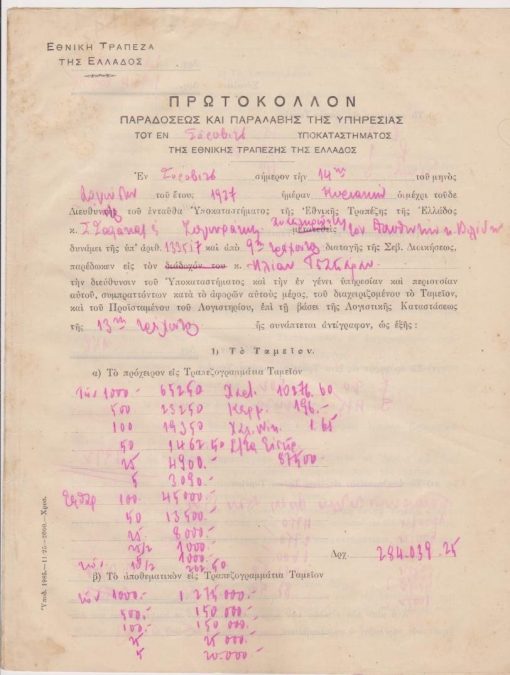 ΕΘΝΙΚΗ ΤΡΑΠΕΖΑ
ΤΗΣ ΕΛΛΑΔΟΣ
ΠΡΩΤΟΚΟΛΛΟΝ
ΠΑΡΑΔΟΣΕΩΣ ΚΑΙ ΠΑΡΑΛΑΒΗΣ ΤΗΣ ΥΠΗΡΕΣΙΑΣ
ΤΟΥ ΕΝ Σόροβιτς ΥΠΟΚΑΤΑΣΤΗΜΑΤΟΣ
ΤΗΣ ΕΘΝΙΚΗΣ ΤΡΑΠΕΖΗΣ ΤΗΣ ΕΛΛΑΔΟΣ
Ἐν Σόροβιτς σήμερον τὴν 14ην τοῦ μηνὸς
τοῦ ἔτους 1927 ἡμέραν Κυριακὴν ὁ μέχρι τοῦδε
Διευθυντὴς τοῦ ἐνταῦθα Ὑποκαταστήματος τῆς Ἐθνικῆς Τραπέζης τῆς Ἑλλάδος
κ. μετατεθεὶς
δυνάμει τῆς ὑπ' ἀριθ. 133517 καὶ ἀπὸ 9ης τρέχοντος διαταγῆς τῆς Σεβ. Διοικήσεως,
παρέδωκεν εἰς τὸν διάδοχόν του κ. Ἠλίαν
τὴν διεύθυνσιν τοῦ Ὑποκαταστήματος καὶ τὴν ἐν γένει ὑπηρεσίαν καὶ περιουσίαν
αὐτοῦ, συμπραττόντων κατὰ τὸ ἀφορῶν αὐτοὺς μέρος, τοῦ διαχειριζομένου τὸ Ταμεῖον,
καὶ τοῦ Προϊσταμένου τοῦ Λογιστηρίου, ἐπὶ τῇ βάσει τῆς Λογιστικῆς Καταστάσεως
τῆς 13ης τρέχοντος ἧς συνάπτεται ἀντίγραφον, ὡς ἑξῆς :
1) Τὸ Ταμεῖον.
α) Τὸ πρόχειρον εἰς Τραπεζογραμμάτια Ταμεῖον
τῶν 1000.- 65250 10276.60
500 23250 Κερμ. 196.-
100 19350 1.65
50 1462.50
25 4900.- 87500.-
5 3090.-
100.- 45000.-
50 13500.-
25 8000.-
25/2 1000.-
τῶν 10/2 202.50
Δρχ. 284.039.25
β) Τὸ ἀποθηματικὸν εἰς Τραπεζογραμμάτια Ταμεῖον
τῶν 1000.- 1.275000.-
500.- 150000.-
100.- 150000.-
25 25000.-
5 20.000.-
Ὑποδ. 1985.—11-25.—2000.—Χρωμ.